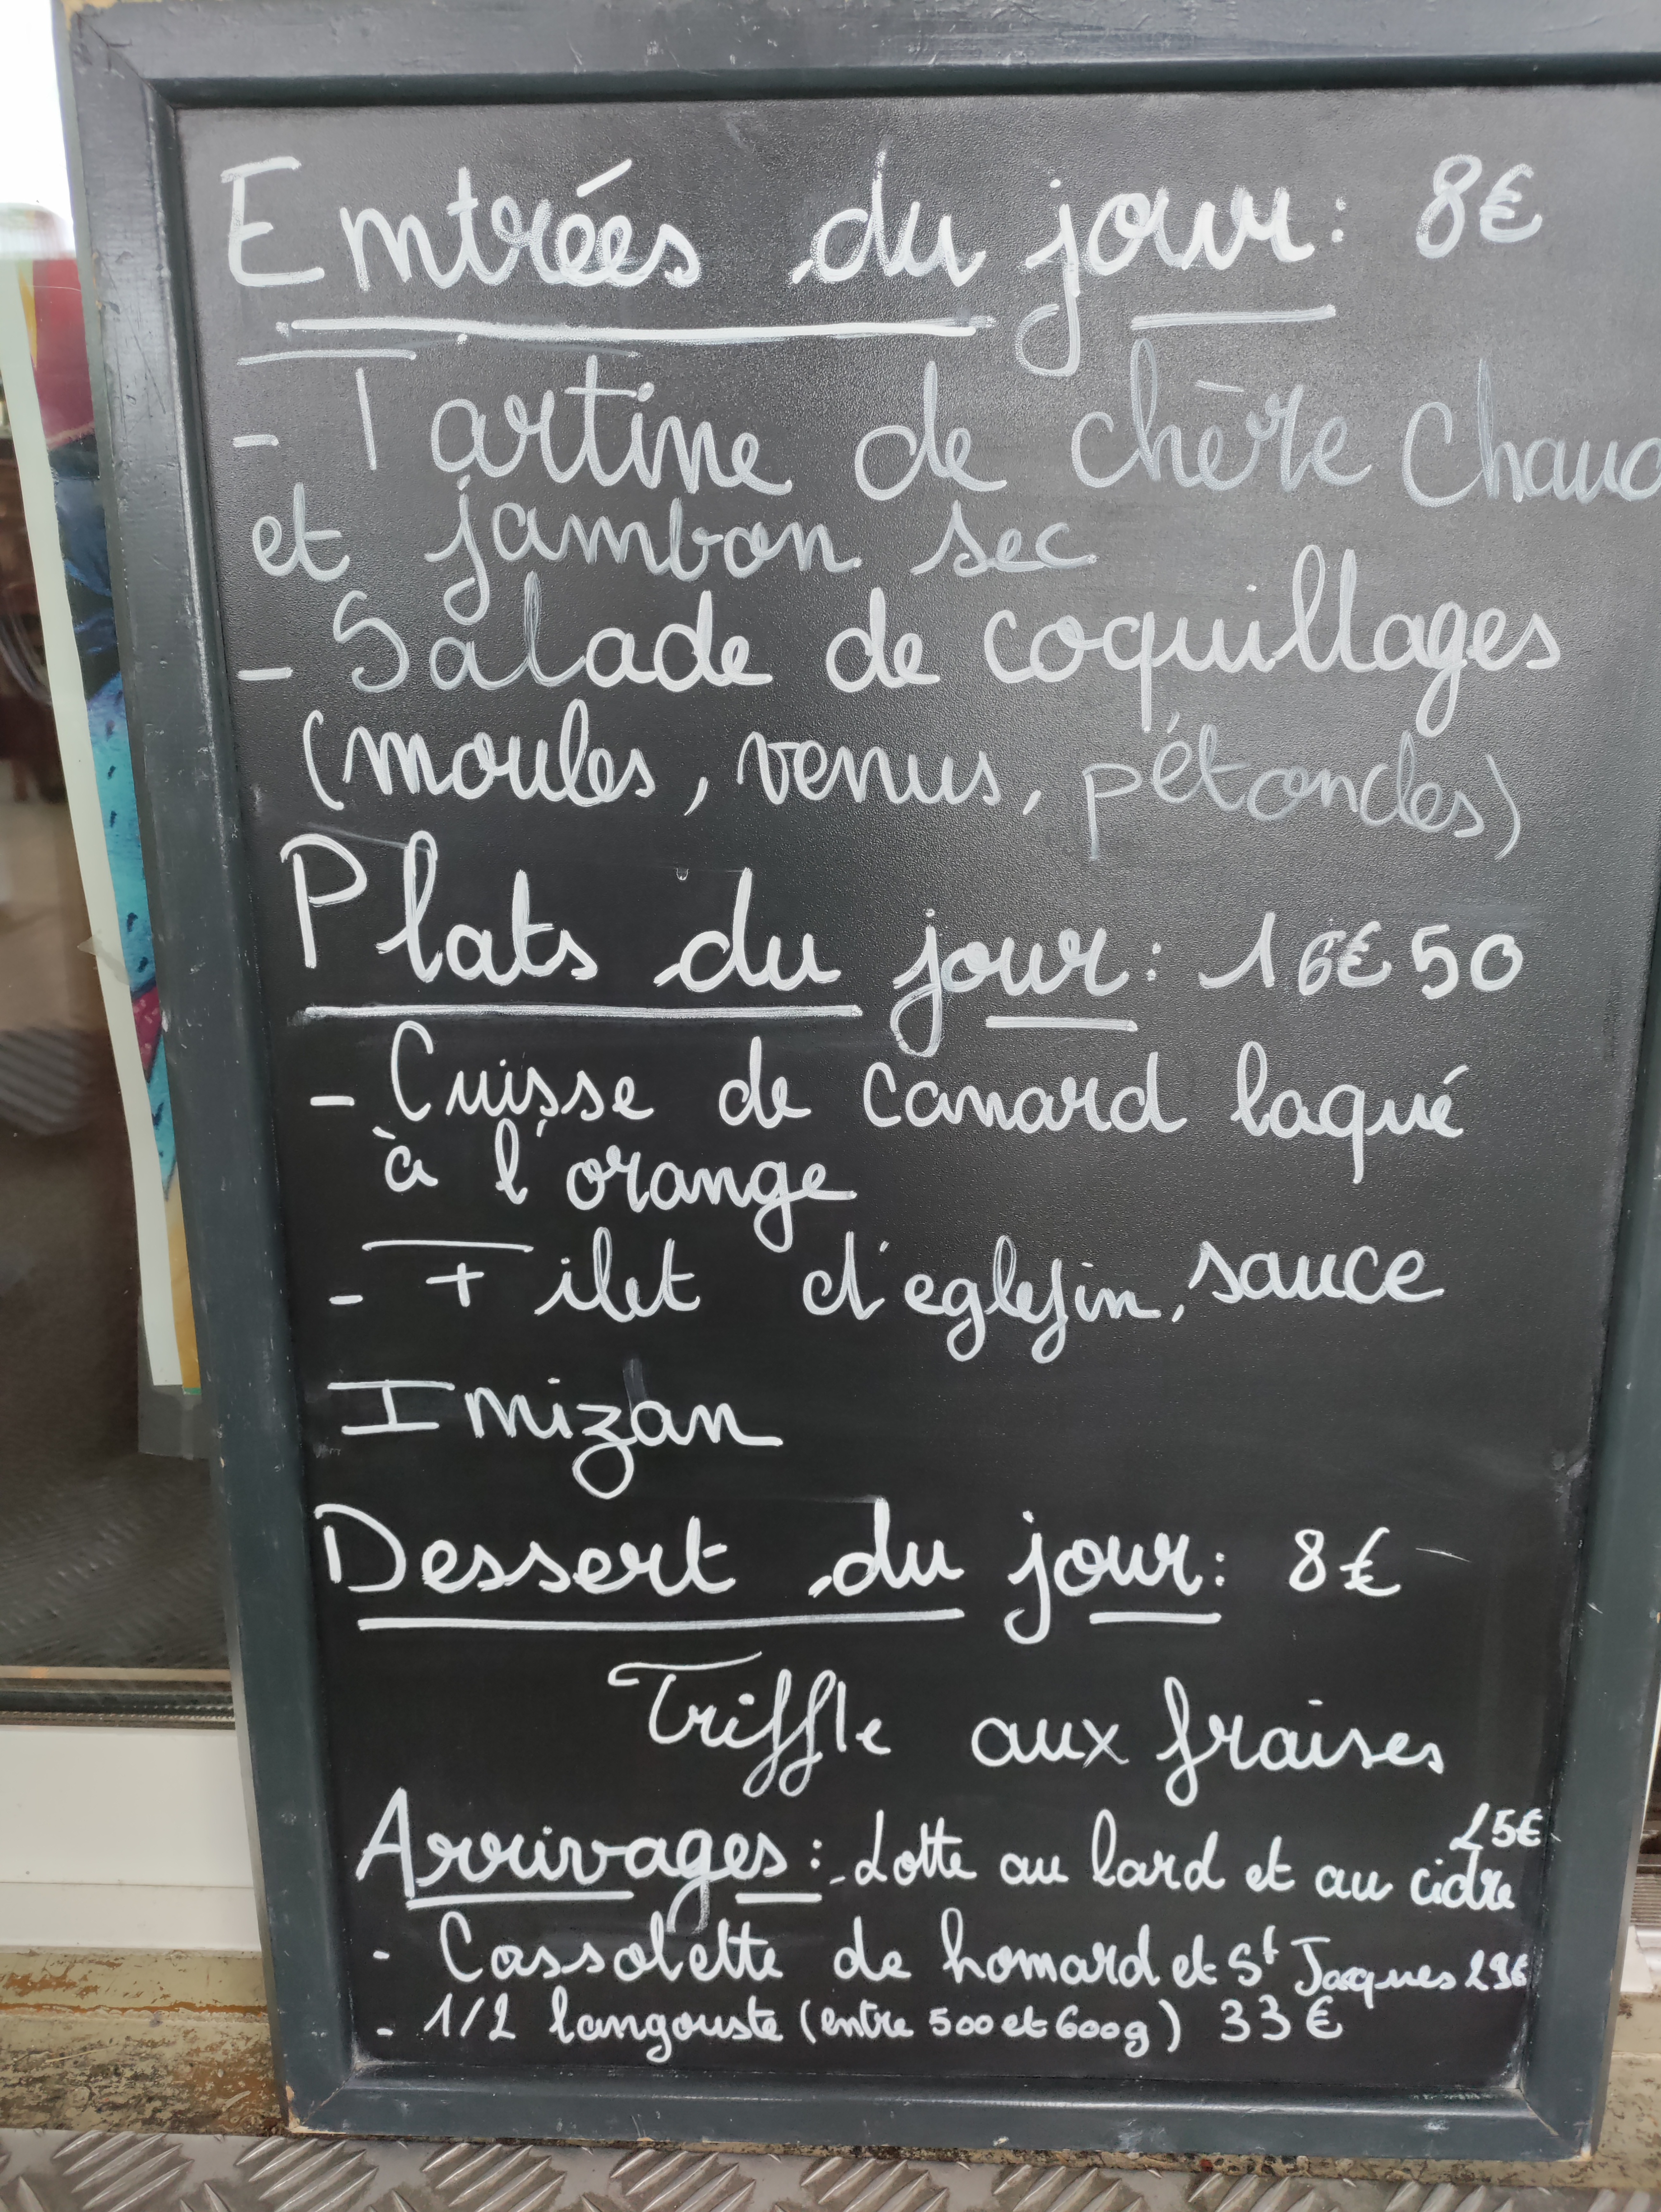 Entrées du jour: 8€
- Tartine de chèvre Chaud
et jambon sec
- Salade de coquillages
(moules, venus, pétoncles)
Plats du jour: 16€50
- Cuisse de canard laqué
à l'orange
- Filet d'eglefin, sauce
Imizan
Dessert du jour: 8€
Triffle aux fraises
25€
Arrivages: - Lotte au lard et au cidre
- Cassolette de homard et St Jacques 29€
- 1/2 langouste (entre 500 et 600g) 33€